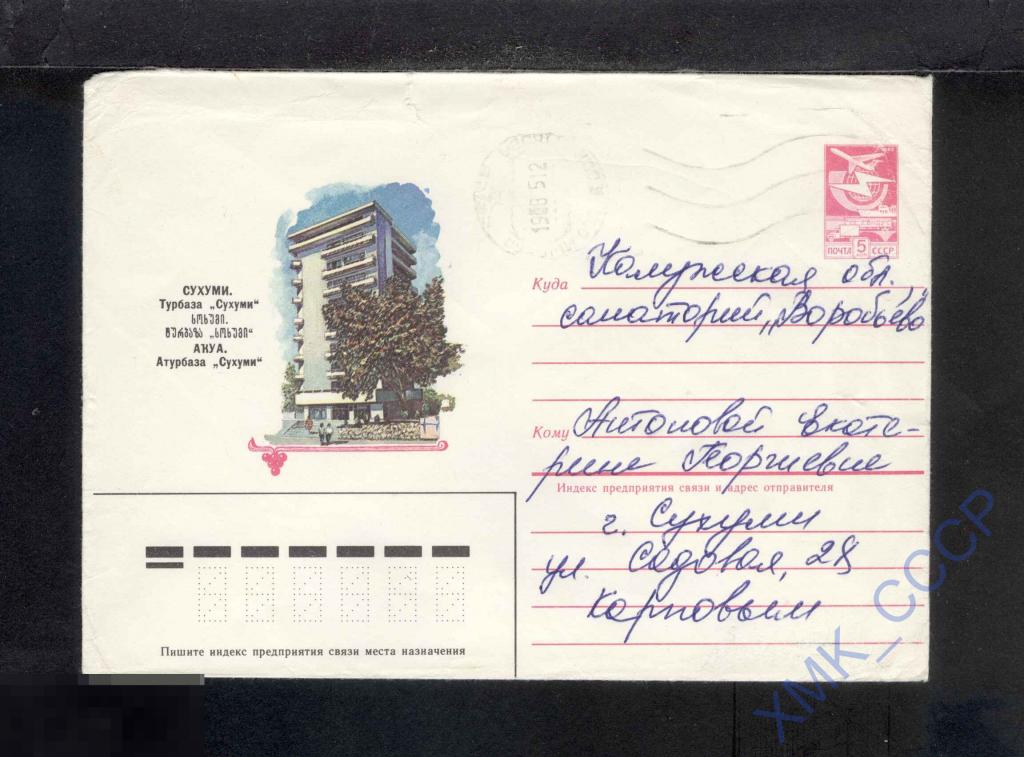 СУХУМИ.
Турбаза „Сухуми“
სოხუმი.
ტურბაზა „სოხუმი“
АҞУА.
Атурбаза „Сухуми“
1988 512
ПОЧТА 5 СССР
Куда Калужская обл.,
санаторий „Воробьёво"
Кому Антоновой Екате-
рине Георгиевне
Индекс предприятия связи и адрес отправителя
г. Сухуми
ул. Садовая, 28
Карповым
Пишите индекс предприятия связи места назначения
ХМК_СССР